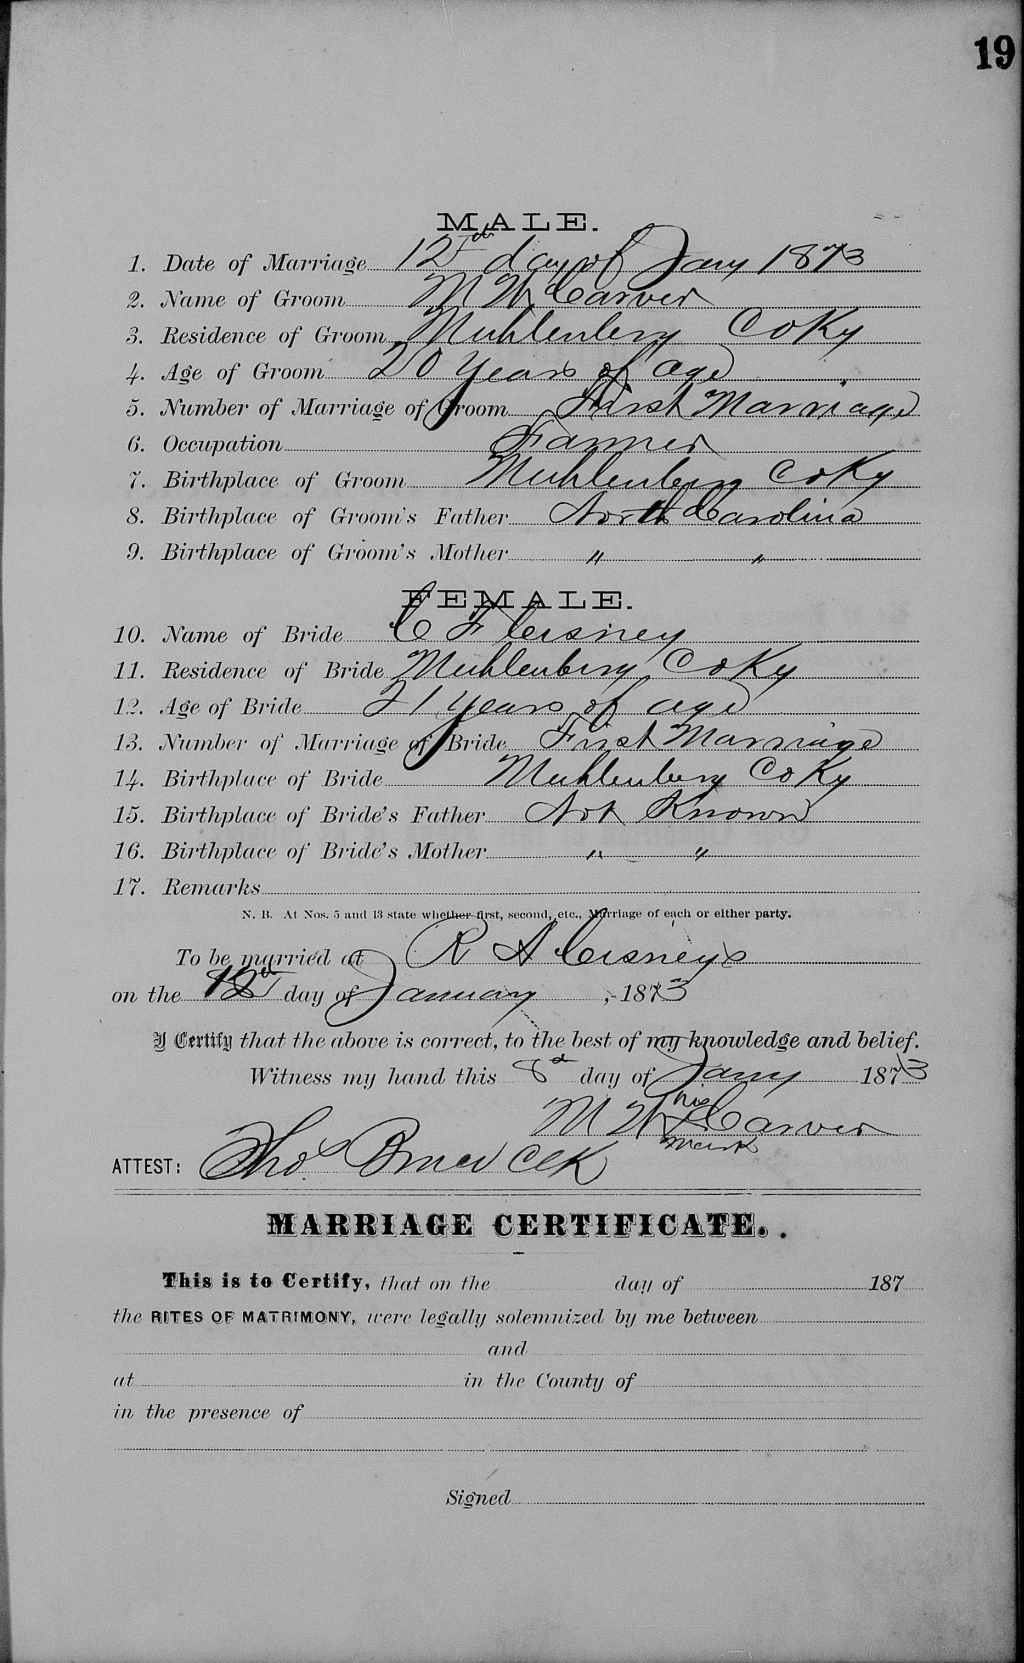 19
MALE.
1. Date of Marriage 12th day of Jany 1873
2. Name of Groom M W Carver
3. Residence of Groom Muhlenberg Co Ky
4. Age of Groom 20 years of age
5. Number of Marriage of Groom First Marriage
6. Occupation Farmer
7. Birthplace of Groom Muhlenberg Co Ky
8. Birthplace of Groom's Father North Carolina
9. Birthplace of Groom's Mother " "
FEMALE.
10. Name of Bride C F Cisney
11. Residence of Bride Muhlenberg Co Ky
12. Age of Bride 21 years of age
13. Number of Marriage of Bride First Marriage
14. Birthplace of Bride Muhlenberg Co Ky
15. Birthplace of Bride's Father Not Known
16. Birthplace of Bride's Mother " "
17. Remarks
N. B. At Nos. 5 and 13 state whether first, second, etc., Marriage of each or either party.
To be married at R A Cisneys
on the 12th day of January, 1873
I Certify that the above is correct, to the best of my knowledge and belief.
Witness my hand this 8th day of Jany 1873
M W his x mark Carver
ATTEST: Thos. Clk
MARRIAGE CERTIFICATE.
This is to Certify, that on the day of 187
the RITES OF MATRIMONY, were legally solemnized by me between
and
at in the County of
in the presence of
Signed